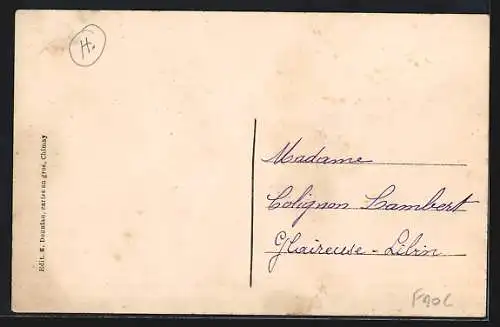 H.
Edit. E. Dauntan, cartes en gros, Chimay
Madame
Colignon Lambert
Glaireuse - Libin